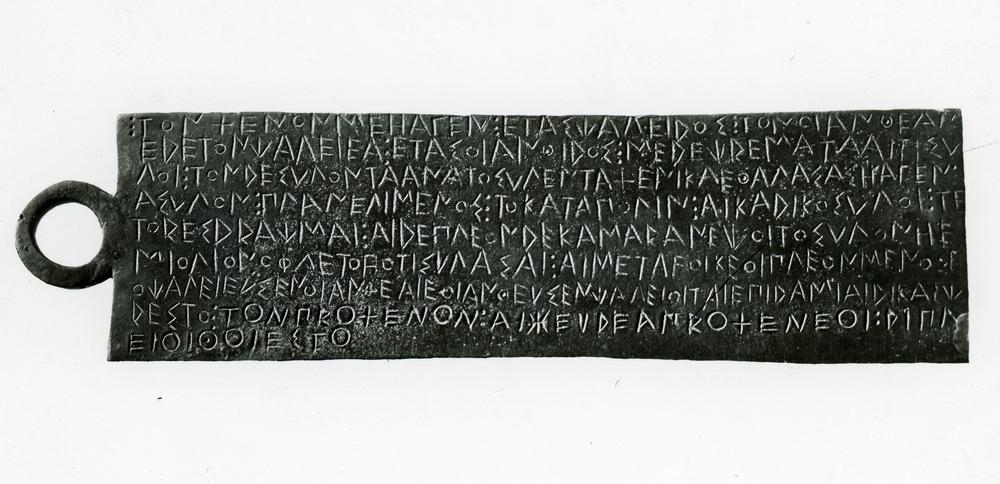 ⁝ΤΟΝΧΕΝΟΝΜΕΗΑΓΕΝ⁝ΕΤΑΣΨΑΛΕΙΔΟΣ⁝ΤΟΝΟΙΑΝΘΕΑΜ
ΕΔΕΤΟΝΨΑΛΕΙΕΑ⁝ΕΤΑΣΟΙΑΝΘΙΔΟΣ⁝ΜΕΔΕΨΡΕΜΑΤΑΑΙΤΙΣΥ
ΛΟΙ⁝ΤΟΝΔΕΣΥΛΟΝΤΑΑΝΑΤΟΣΥΛΕΝΤΑΧΕΝΙΚΑΕΘΑΛΑΣΑΣΗΑΓΕΝ
ΑΣΥΛΟΝ⁝ΠΛΑΝΕΛΙΜΕΝΟΣ⁝ΤΟΚΑΤΑΠΟΛΙΝ⁝ΑΙΚΑΔΙΚΟΣΥΛΟΙ⁝ΤΕ
ΤΟΡΕΣΔΡΑΨΜΑΙ⁝ΑΙΔΕΠΛΕΟΝΔΕΚΑΜΑΡΑΝΕΨΟΙΤΟΣΥΛΟΝΗΕ
ΜΙΟΛΙΟΝΟΦΛΕΤΟϜΟΤΙΣΥΛΑΣΑΙ⁝ΑΙΜΕΤΑϜΟΙΚΕΟΙΠΛΕΟΝΜΕΝΟΣΕ
ΟΨΑΛΕΙΕΥΣΕΝΟΙΑΝΘΕΑΙΕΟΙΑΝΘΕΥΣΕΝΨΑΛΕΙΟΙΤΑΙΕΠΙΔΑΜΙΑΙΔΙΚΑΙΨ
ΡΕΣΤΟ⁝ΤΟΝΠΡΟΧΕΝΟΝ⁝ΑΙЖΕΥΔΕΑΠΡΟΧΕΝΕΟΙ⁝ΔΙΠΛ
ΕΙΟΙΘΟΙΕΣΤΟ